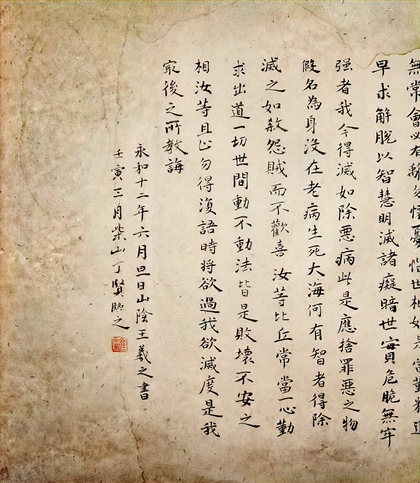 無常會必有離勿懷憂惱世相如是當勤精進
早求解脫以智慧明滅諸癡暗世實危脆無牢
强者我今得滅如除惡病此是應捨罪惡之物
假名為身沒在老病生死大海何有智者得除
滅之如殺怨賊而不歡喜汝等比丘常當一心勤
求出道一切世間動不動法皆是敗壞不安之
相汝等且止勿得復語時將欲過我欲滅度是我
最後之所教誨
永和十二年六月旦日山陰王羲之書
壬寅三月山丁賢臨之